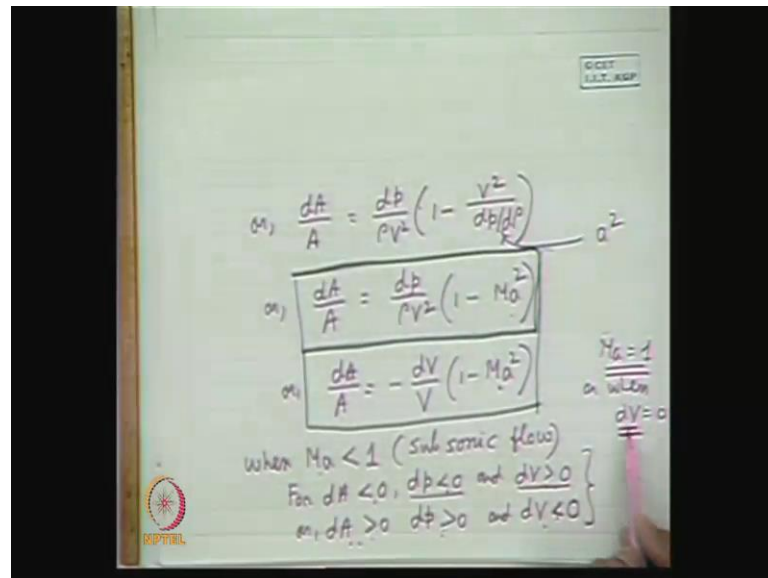 © CET
I.I.T. KGP
or, dA/A = dp/ρV² (1 - V²/(dp/dρ)) a²
or, dA/A = dp/ρV² (1 - Ma²)
or, dA/A = - dV/V (1 - Ma²)
Ma = 1
or when
dV = 0
when Ma < 1 (subsonic flow)
For dA < 0, dp < 0 and dV > 0
or, dA > 0 dp > 0 and dV < 0
NPTEL